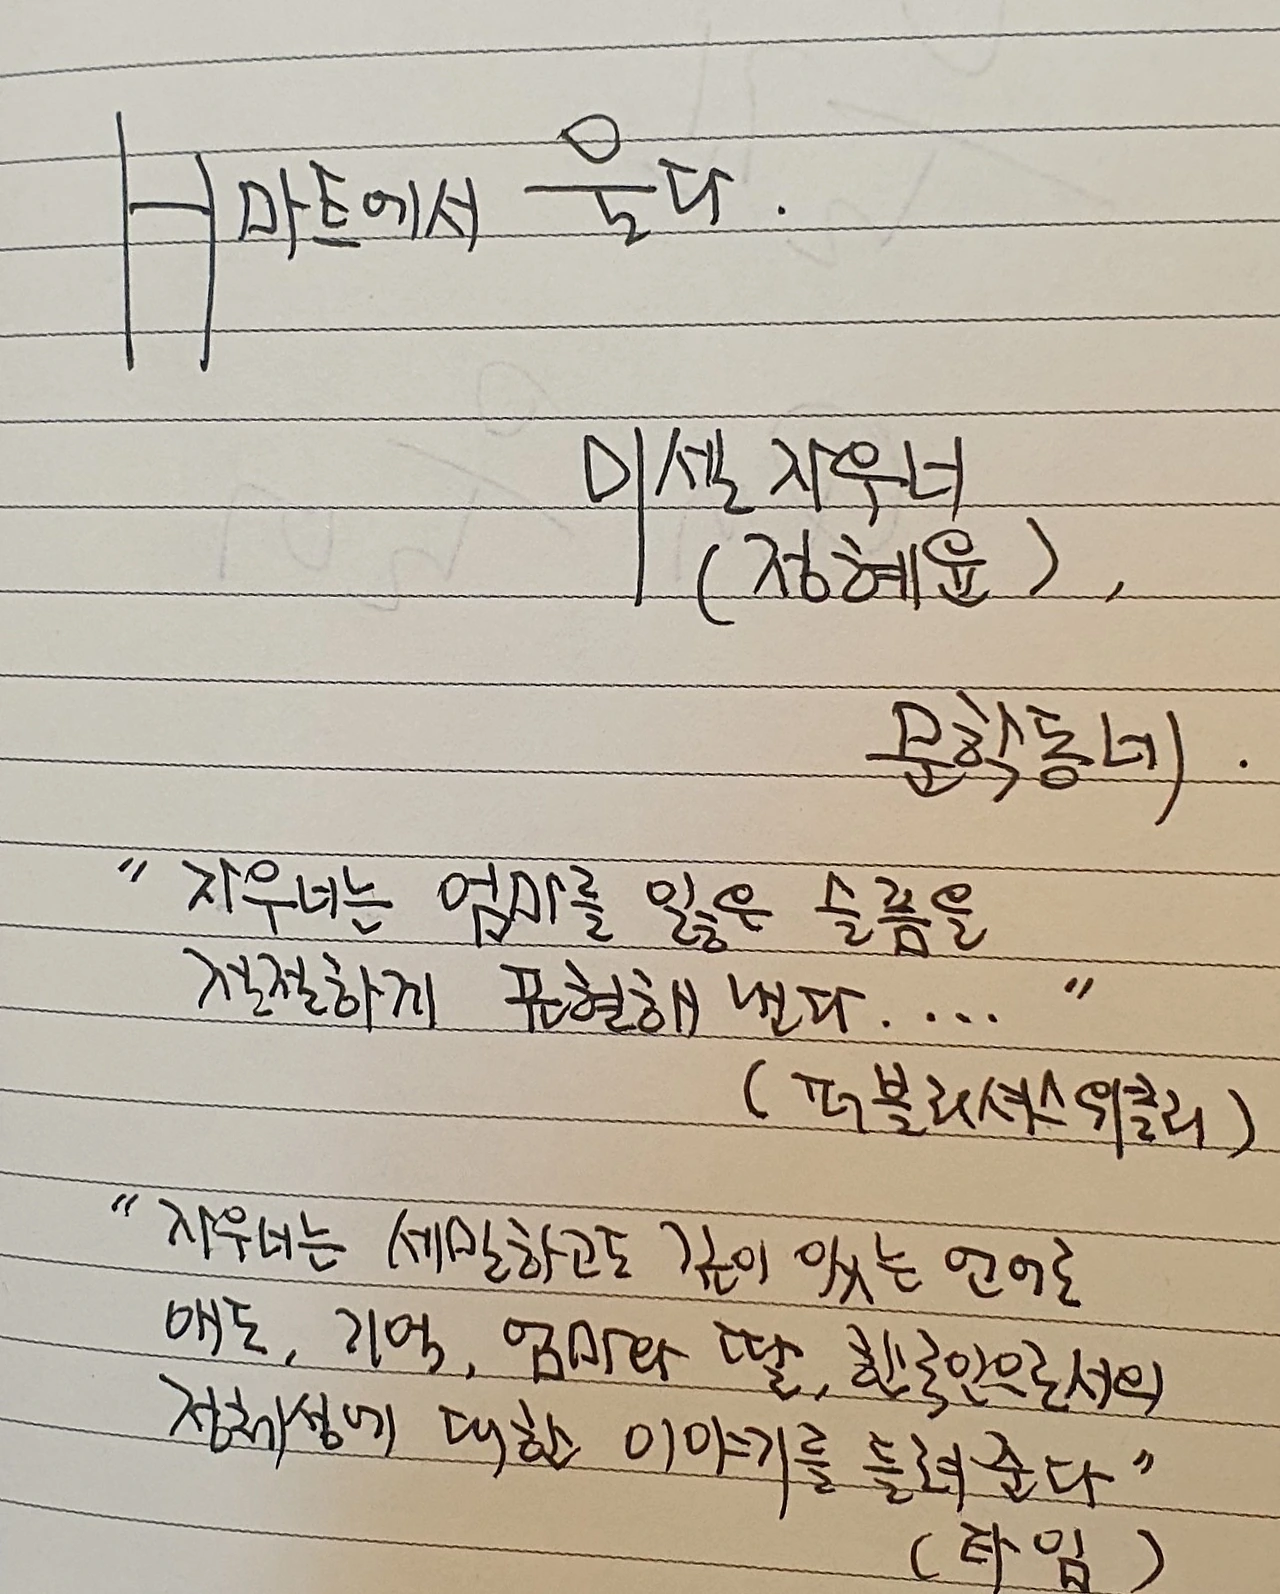 H마트에서 운다.
미셸 자우너
(정혜윤),
문학동네.
"자우너는 엄마를 잃은 슬픔을
절절하게 표현해 낸다. ...."
(퍼블리셔스위클리)
"자우너는 세밀하고도 깊이 있는 언어로
애도, 기억, 엄마와 딸, 한국인으로서의
정체성에 대한 이야기를 들려 준다"
(타임)